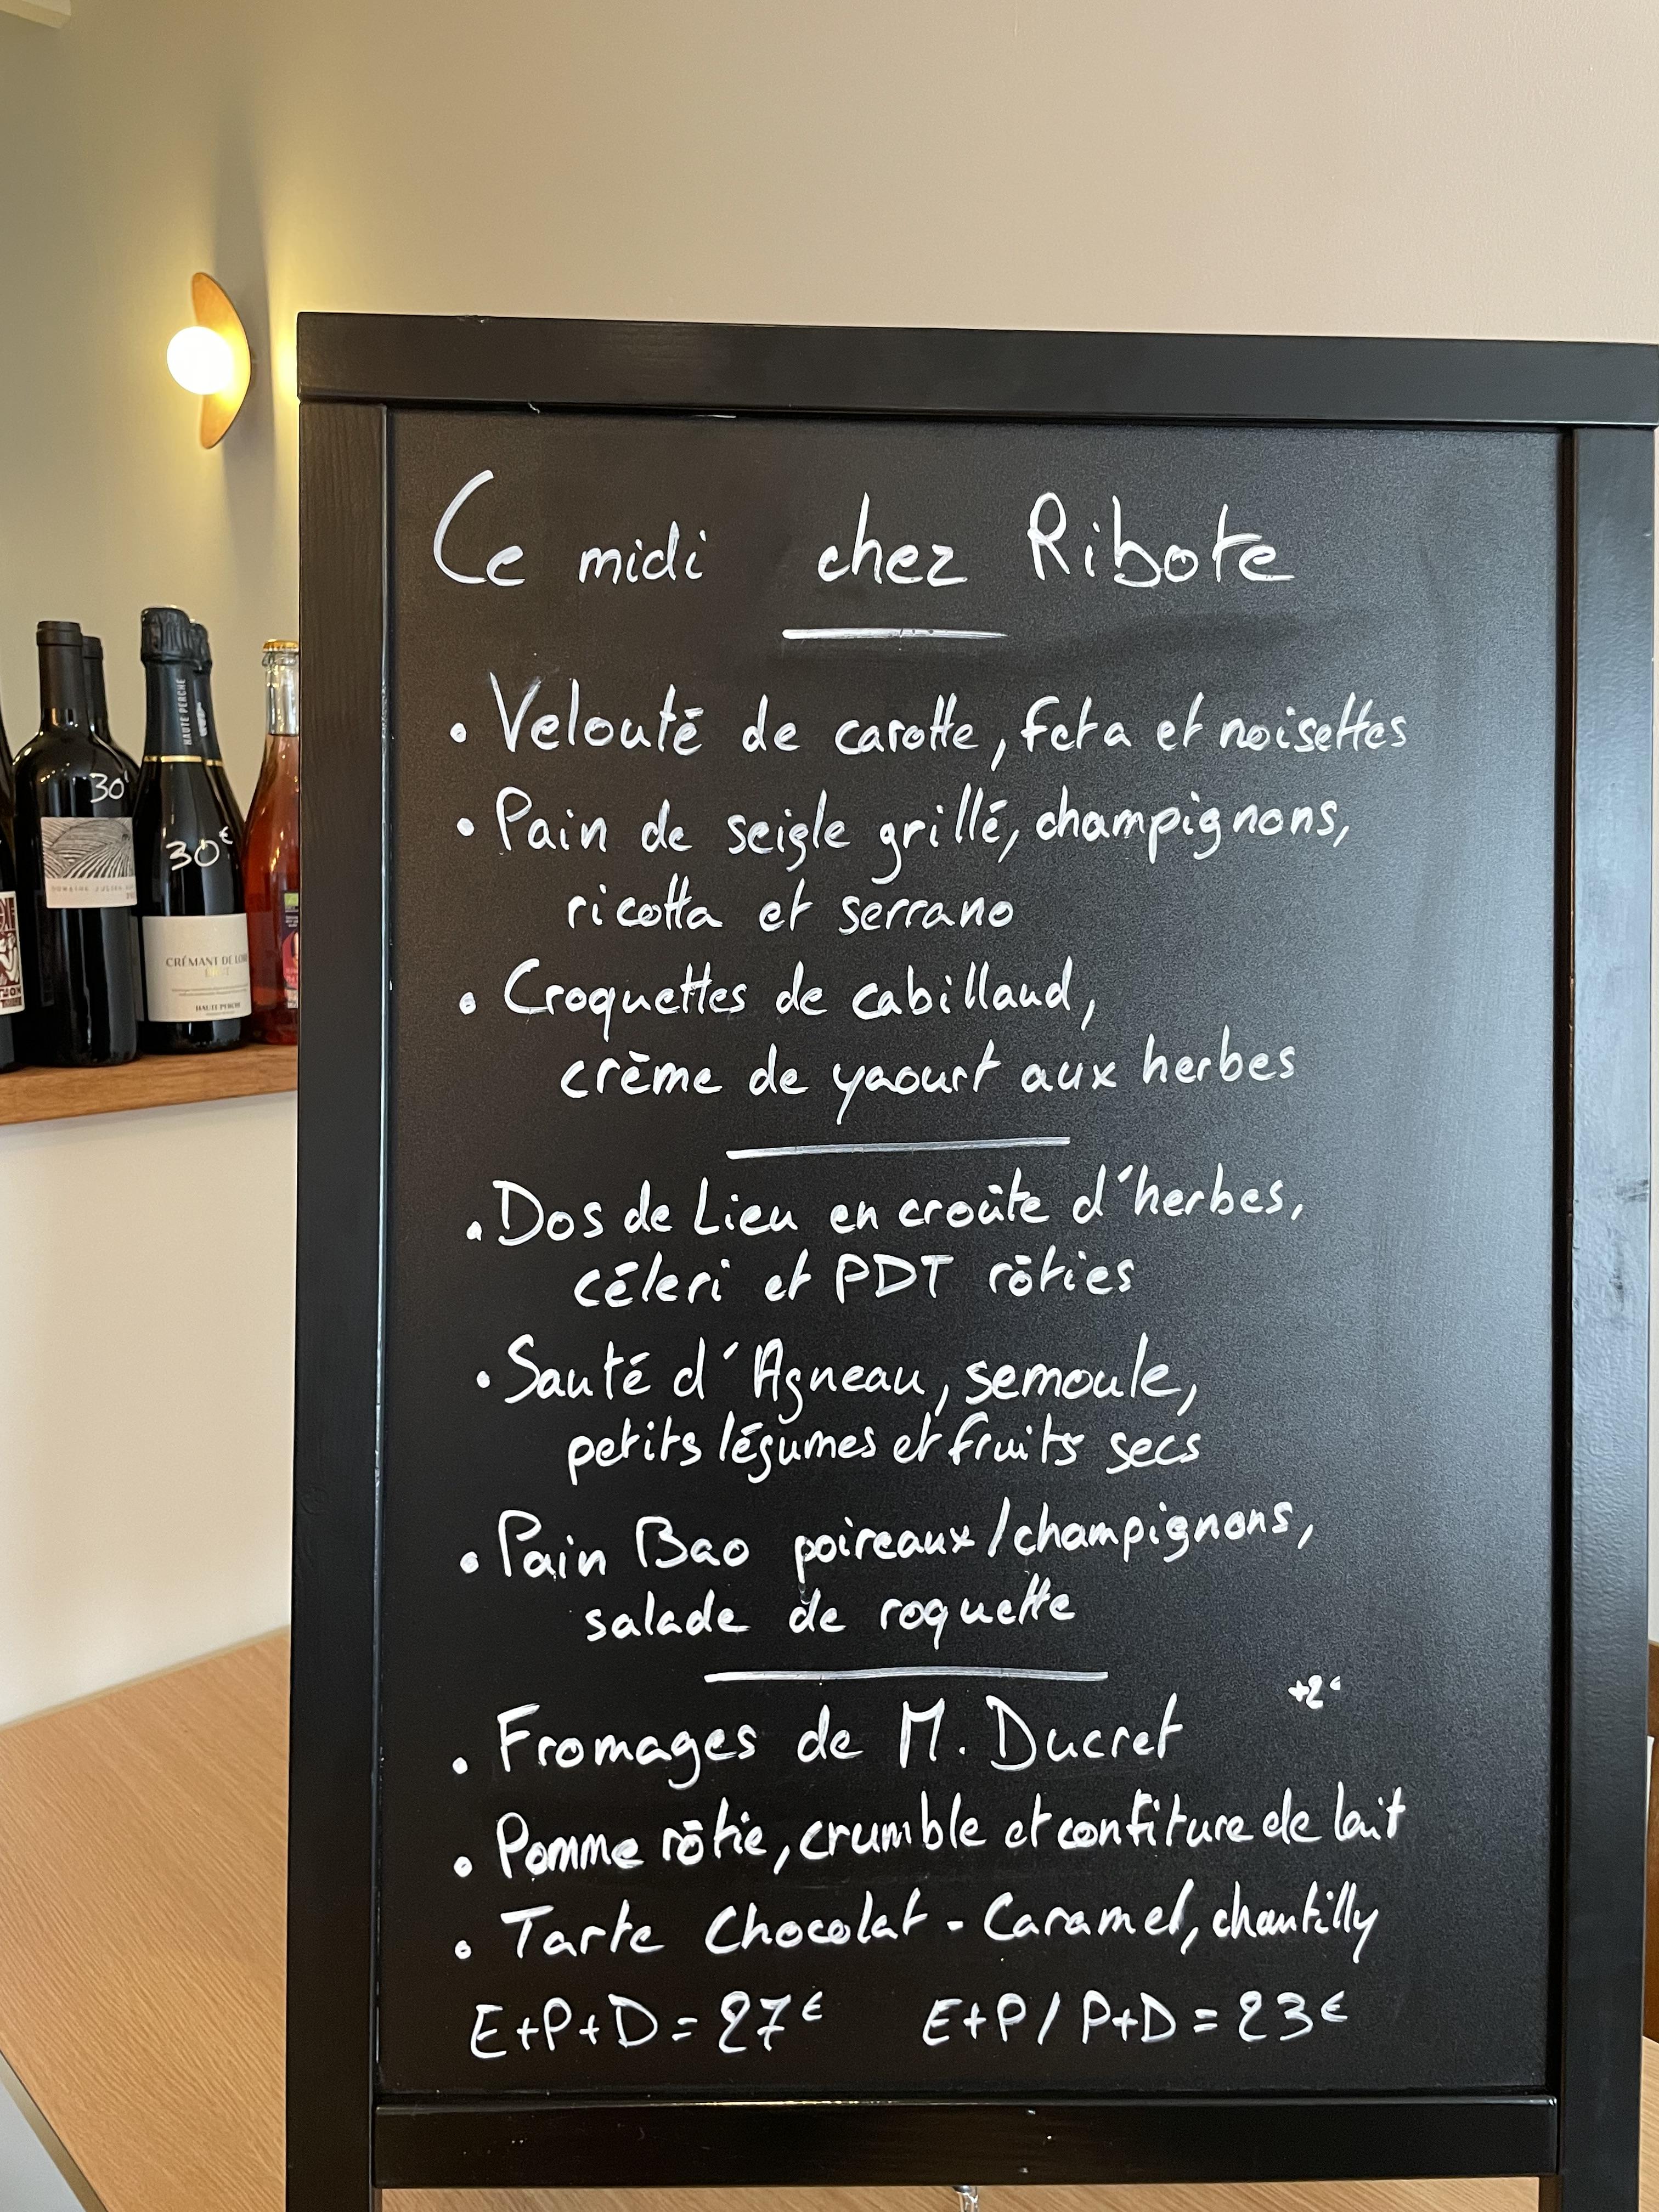 Ce midi chez Ribote
• Velouté de carotte, feta et noisettes
• Pain de seigle grillé, champignons,
ricotta et serrano
• Croquettes de cabillaud,
crème de yaourt aux herbes
• Dos de Lieu en croûte d'herbes,
céleri et PDT rôties
• Sauté d'Agneau, semoule,
petits légumes et fruits secs
• Pain Bao poireaux/champignons,
salade de roquette
+2€
• Fromages de M. Ducret
• Pomme rôtie, crumble et confiture de lait
• Tarte Chocolat - Caramel, chantilly
E+P+D = 27€ E+P / P+D = 23€
30€
DOMAINE
HAUTE PERCHE
30€
CRÉMANT DE
HAUTE PERCHE